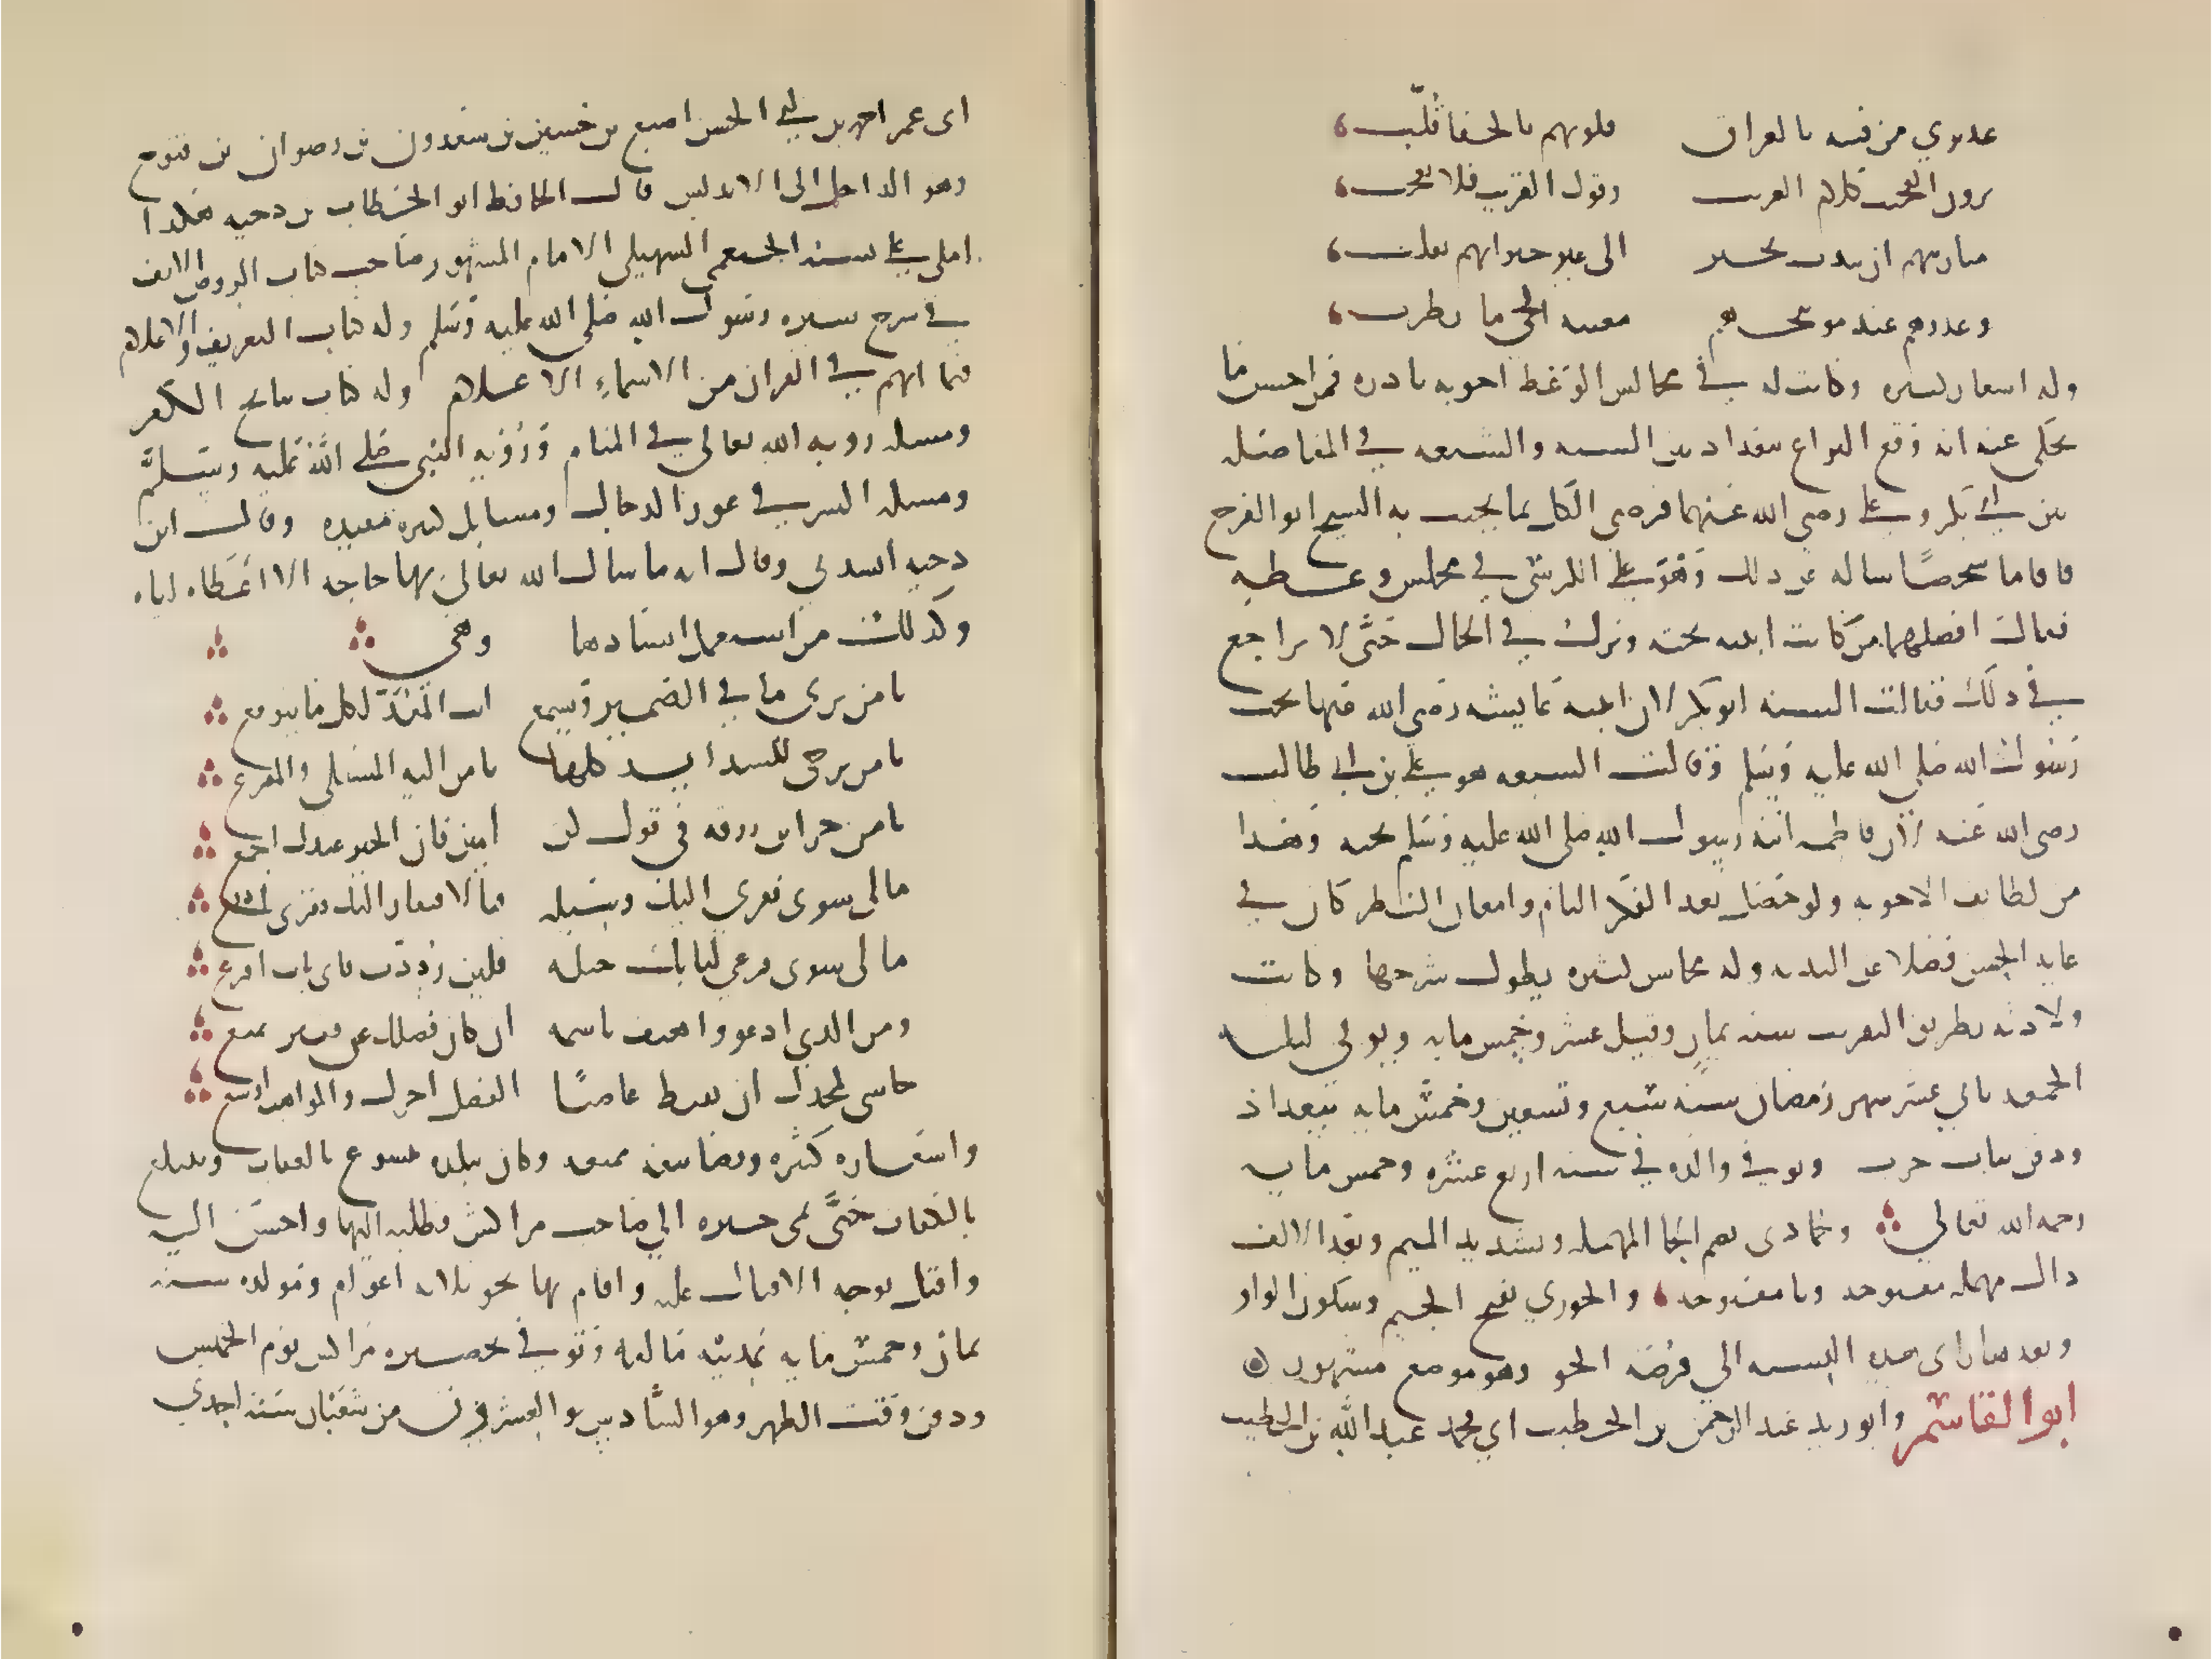 عديري من فتية بالعراق قلوبهم بالجفا قلّب
يرون العجيب كلام الغريب وقول القريب فلا يعجب
ميازيبهم ان تندت بخير الى غير جيرانهم تقلب
وعذرهم عند توبيخهم مغنية الحي ما تطرب
وله اشعار كثيرة وكانت له في مجالس الوعظ اجوبة نادرة فمن احسن ما
يحكى عنه انه وقع النزاع ببغداد بين السنة والشيعة في المفاضلة
بين ابي بكر وعلي رضي الله عنهما فرضي الكل بما يجيب به الشيخ ابو الفرج
فاقاموا شخصًا ساله عن ذلك وهو على الكرسي في مجلس وعظه
فقال افضلهما من كانت ابنته تحته ونزل في الحال حتى لا يراجع
في ذلك فقالت السنة ابو بكر لان ابنته عايشة رضي الله عنها تحت
رسول الله صلى الله عليه وسلم وقالت الشيعة هو علي بن ابي طالب
رضي الله عنه لان فاطمة ابنة رسول الله صلى الله عليه وسلم تحته وهذا
من لطائف الاجوبة ولو حصل بعد الفكر التام وامعان النظر كان في
غاية الحسن فضلا عن البديهة وله محاسن كثيرة يطول شرحها وكانت
ولادته بطريق التقريب سنة ثمان وقيل عشر وخمس ماية وتوفي ليلة
الجمعة ثاني عشر شهر رمضان سنة سبع وتسعين وخمس ماية ببغداد
ودفن بباب حرب وتوفي والده في سنة اربع عشرة وخمس ماية
رحمه الله تعالى وحمادى بضم الحا المهملة وتشديد الميم وبعد الالف
دال مهملة مفتوحة ويا مفتوحة والجوزي بفتح الجيم وسكون الواو
وبعدها زاى هذه النسبة الى فرضة الجوز وهو موضع مشهور
ابو القاسم وابو زيد عبد الرحمن بن الخطيب ابي محمد عبد الله بن الخطيب
ابى عمر احمد بن ابي الحسن اصبغ بن حسين بن سعدون بن رضوان بن فتوح
وهو الداخل الى الاندلس قال الحافظ ابو الخطاب بن دحية هكذا
املى علي نسبه الخثعمي السهيلي الامام المشهور صاحب كتاب الروض الانف
في شرح سيرة رسول الله صلى الله عليه وسلم وله كتاب التعريف والاعلام
فيما ابهم في القران من الاسماء الاعلام وله كتاب نتايج الفكر
ومسلة روية الله تعالى في المنام وروية النبي صلى الله عليه وسلم
ومسلة السر في عور الدجال ومسايل كثيرة مفيدة وقال ابن
دحية انشدني وقال انه ما سال الله تعالى بها حاجة الا اعطاه اياه
وكذلك من استعمل انشادها وهي
يا من يرى ما في الضمير ويسمع انت المعد لكل ما يتوقع
يا من يرجى للشدايد كلها يا من اليه المشتكى والمفزع
يا من خزاين رزقه في قول كن امنن فان الخير عندك اجمع
ما لي سوى فقري اليك وسيلة فبالافتقار اليك فقري
ما لي سوى قرعي لبابك حيلة فلين رددت فاى باب اقرع
ومن الذي ادعو واهتف باسمه ان كان فضلك عن فقير يمنع
حاشى لمجدك ان يقنط عاصيًا الفضل اجزل والمواهب اوسع
واشعاره كثيرة وتصانيفه ممتعة وكان ببلده يتسوغ بالعفاف ويتبلغ
بالكفاف حتى نمى خبره الى صاحب مراكش فطلبه اليها واحسن اليه
واقبل بوجه الاقبال عليه واقام بها نحو ثلاثة اعوام ومولده سنة
ثمان وخمس ماية بمدينة مالقة وتوفي بحضرة مراكش يوم الخميس
ودفن وقت الظهر وهو السادس والعشرون من شعبان سنة احدى